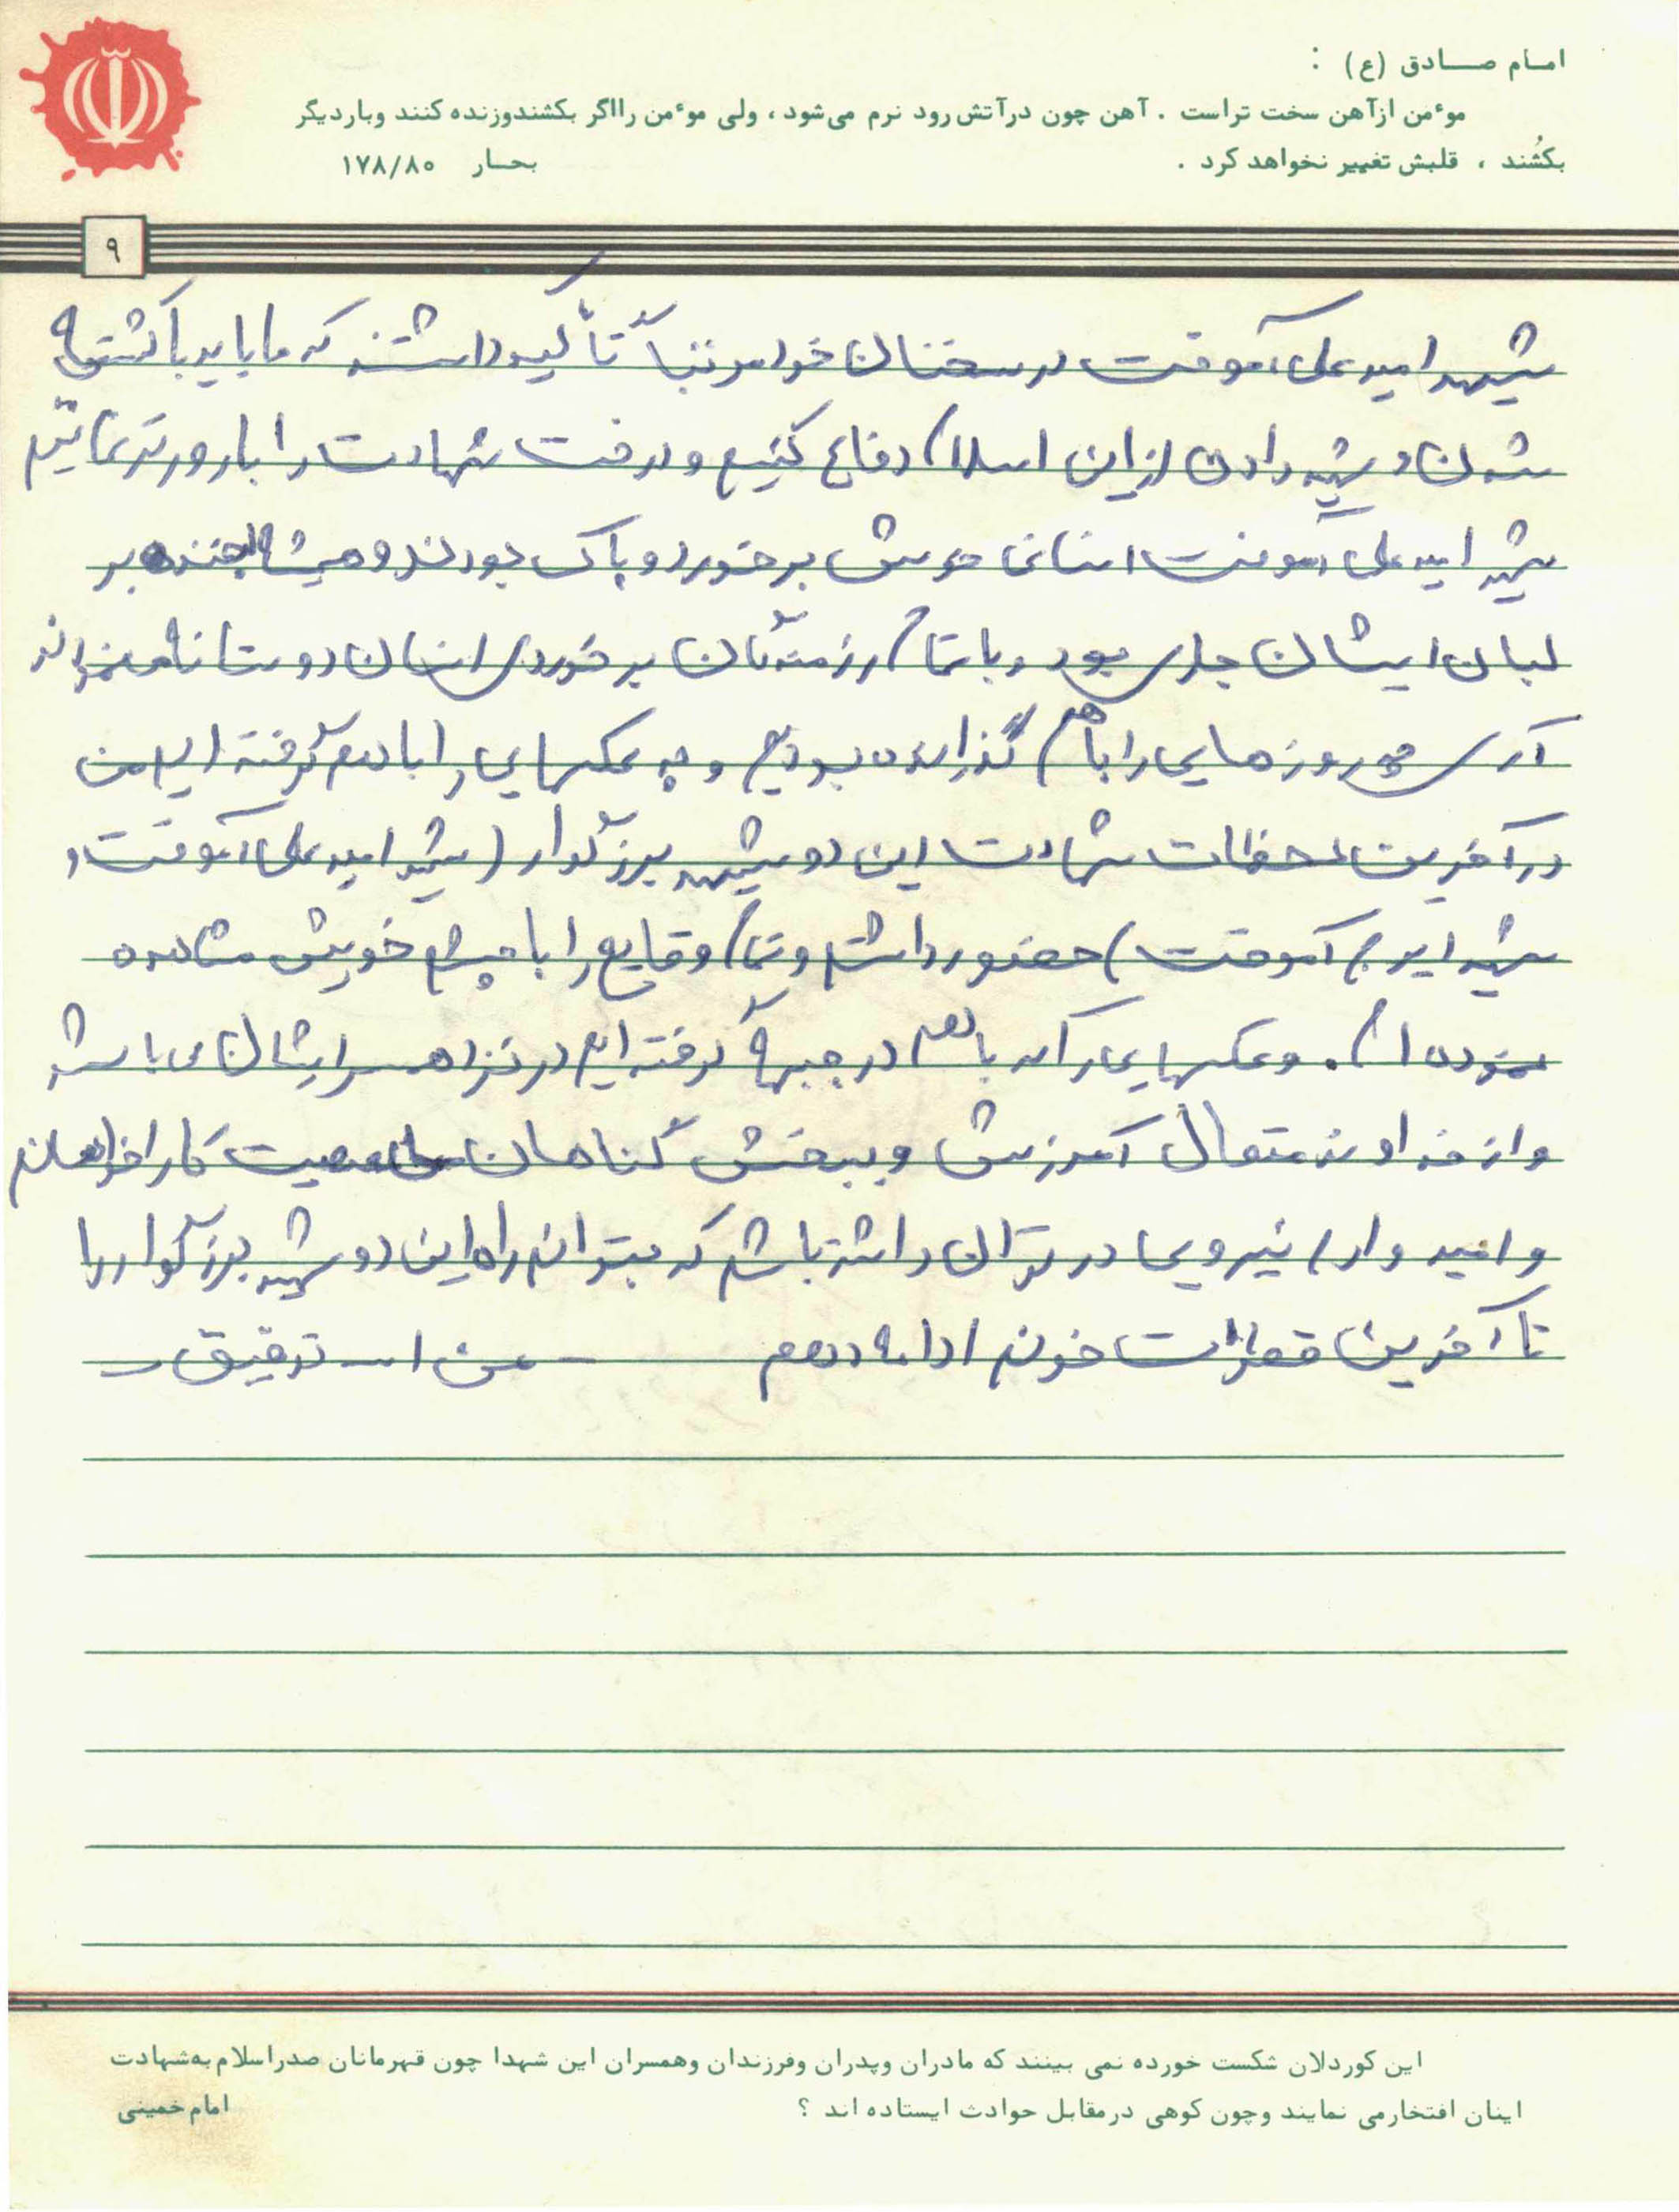 امام صادق (ع) :
موءمن ازآهن سخت تراست . آهن چون درآتش رود نرم می‌شود ، ولی موءمن رااگر بکشندوزنده کنند وباردیگر
بکُشند ، قلبش تغییر نخواهد کرد . بحار ۱۷۸/۸۰
۹
شهید امید علی آموخت در سخنان خود مرتباً تأکید داشتند که ما باید با کشته
شدن و شهید دادن از این اسلام دفاع کنیم و درخت شهادت را بارورتر نمائیم
شهید امید علی آموخت انسانی خوش برخورد و پاک بودند و همیشه لبخند بر
لبان ایشان جاری بود و با تمام رزمندگان برخوردی انسان دوستانه
آری چه روزهایی را با هم گذرانده بودیم و چه عکسهایی را با هم گرفته ایم من
در آخرین لحظات شهادت این دو شهید بزرگوار (شهید امید علی آموخت و
شهید ایرج آموخت) حضور داشتم و تمام وقایع را با چشم خویش مشاهده
نموده ام. و عکسهایی را که با هم در جبهه گرفته ایم در نزد همسر ایشان می باشد
و از خداوند متعال آمرزش و ببخشش گناهان معصیت کار را خواهانم
و امیدوارم نیرویی در توان داشته باشم که بتوانم راه این دو شهید بزرگوار را
تا آخرین قطرات خونم ادامه دهم - من ا... توفیق -
این کوردلان شکست خورده نمی بینند که مادران وپدران وفرزندان وهمسران این شهدا چون قهرمانان صدراسلام به‌شهادت
اینان افتخارمی نمایند وچون کوهی درمقابل حوادث ایستاده اند ؟ امام خمینی